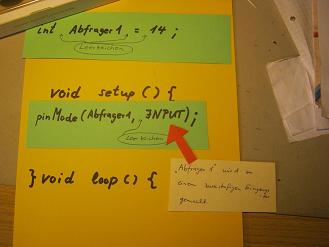 int Abfrager1 = 14;
Leerzeichen
void setup () {
pinMode (Abfrager1, INPUT);
Leerzeichen
„Abfrager1" wird zu
einem
gemacht.
} void loop () {